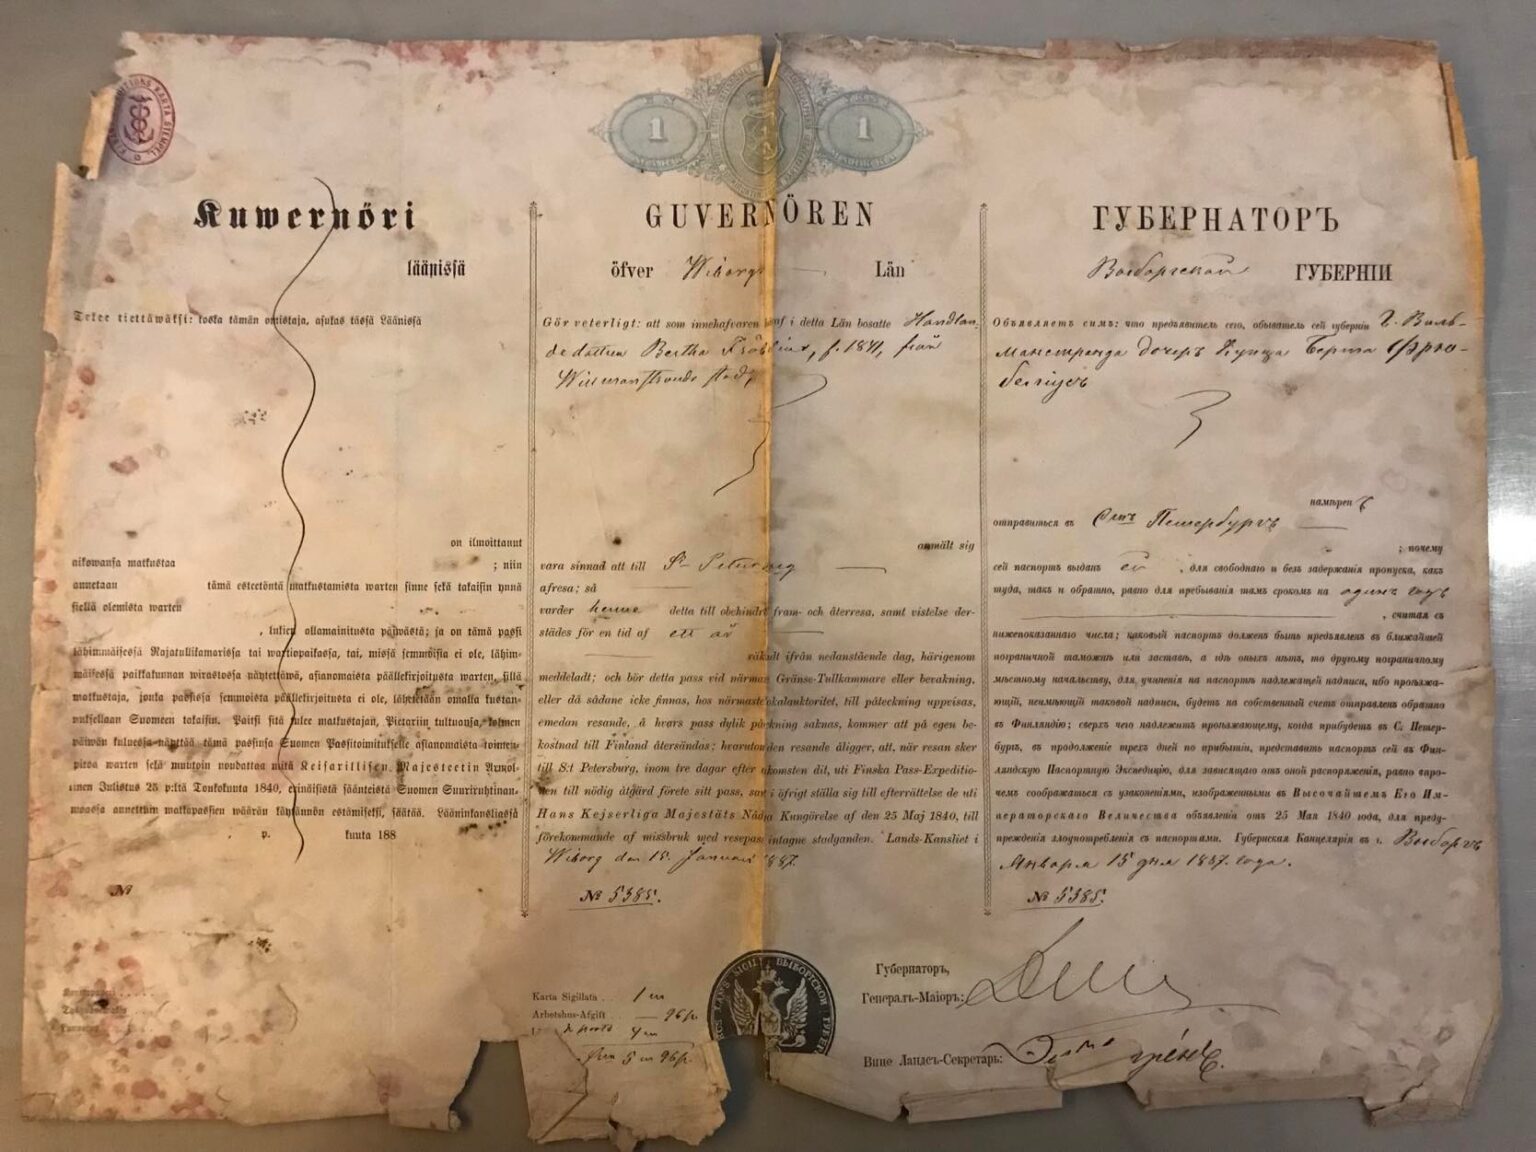 KARTA STEMPEL
1
1
Kuwernöri
läänissä
Tekee tiettäwäksi: koska tämän omistaja, asukas tässä Läänissä
on ilmoittanut
aikowansa matkustaa ; niin
annetaan tämä estetöntä matkustamista warten sinne sekä takaisin ynnä
siellä olemista warten
, lukien allamainitusta päiwästä; ja on tämä passi
lähimmäisessä Rajatullikamarissa tai wartiopaikassa, tai, missä semmoisia ei ole, lähim-
mäisessä paikkakunnan wirastossa näytettäwä, asianomaista päällekirjoitusta warten, sillä
matkustaja, jonka passissa semmoista päällekirjoitusta ei ole, lähetetään omalla kustan-
nuksellaan Suomeen takaisin. Paitsi sitä tulee matkustajan, Pietariin tultuansa, kolmen
päiwän kuluessa näyttää tämä passinsa Suomen Passitoimitukselle asianomaista toimen-
pitoa warten sekä muutoin noudattaa mitä Keisarillisen Majesteetin Armol-
linen Julistus 25 p:ltä Toukokuuta 1840, erinäisistä säänteistä Suomen Suuriruhtinan-
maassa annettuin matkapassien wäärän käytännön estämiseksi, säätää. Lääninkansliassa
p. kuuta 188
№
GUVERNÖREN
öfver Wiborgs Län
Gör veterligt: att som innehafvaren häraf i detta Län bosatte Handlan-
dedottern Bertha f. 1871, från
Willmanstrands stad
anmält sig
vara sinnad att till S:t Petersburg
afresa; så
varder henne detta till obehindrad fram- och återresa, samt vistelse der-
städes för en tid af ett år
räknadt ifrån nedanstående dag, härigenom
meddeladt; och bör detta pass vid närmaste Gränse-Tullkammare eller bevakning,
eller då sådane icke finnas, hos närmaste lokalauktoritet, till påteckning uppvisas,
emedan resande, å hvars pass dylik påteckning saknas, kommer att på egen be-
kostnad till Finland återsändas; hvarutom den resande åligger, att, när resan sker
till S:t Petersburg, inom tre dagar efter ankomsten dit, uti Finska Pass-Expeditio-
nen till nödig åtgärd förete sitt pass, samt i öfrigt ställa sig till efterrättelse de uti
Hans Kejserliga Majestäts Nådiga Kungörelse af den 25 Maj 1840, till
förekommande af missbruk med resepass intagne stadganden. Lands-Kansliet i
Wiborg den 15 Januari 1887.
№ 5385.
Karta Sigillata . . 1 m
Arbetshus-Afgift . . — 96 p.
4 m
5 m 96 p.
ГУБЕРНАТОРЪ
Выборгской ГУБЕРНІИ
Объявляетъ симъ: что предъявитель сего, обыватель сей губерніи Г. Виль-
манстранда дочерь Купца Берта Фрю-
беліусъ
намѣрен ъ
отправиться въ Санктъ Петербургъ
; почему
сей паспортъ выданъ ей , для свободнаго и безъ задержанія пропуска, какъ
туда, такъ и обратно, равно для пребыванія тамъ срокомъ на одинъ годъ
, считая съ
нижепоказаннаго числа; каковый паспортъ долженъ быть предъявленъ въ ближайшей
пограничной таможнѣ или заставѣ, а гдѣ оныхъ нѣтъ, то другому пограничному
мѣстному начальству, для учиненія на паспортѣ надлежащей надписи, ибо проѣзжа-
ющій, неимѣющій таковой надписи, будетъ на собственный счетъ отправленъ обратно
въ Финляндію; сверхъ чего надлежитъ проѣзжающему, когда прибудетъ въ С. Петер-
бургъ, въ продолженіе трехъ дней по прибытіи, представить паспортъ сей въ Фин-
ляндскую Паспортную Экспедицію, для зависящаго отъ оной распоряженія, равно впро-
чемъ сообразоваться съ узаконеніями, изображенными въ Высочайшемъ Его Им-
ператорскаго Величества объявленіи отъ 25 Мая 1840 года, для преду-
прежденія злоупотребленія съ паспортами. Губернская Канцелярія въ г. Выборгѣ
Января 15 дня 1887 года.
№ 5385.
ВЫБОРГСКОЙ
Губернаторъ,
Генералъ-Маіоръ:
Вице Ландсъ-Секретарь: